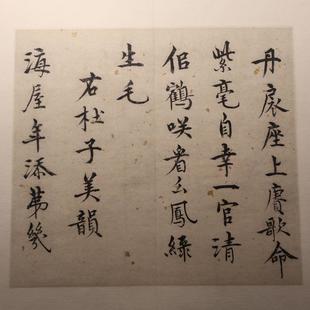 丹扆座上賡歌命
紫毫自幸一官清
侶鶴咲看幺鳳綠
生毛
右杜子美韻
海屋年添苐幾